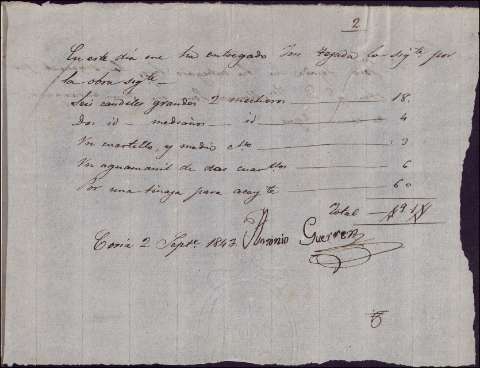 2
En este dia me ha entregado Tejada lo sigte por
la obra sigte
Seis candeles grandes 2 mecheros 18.
Dos id medianos id 4
Un cuartillo, y medio 3
Un aguamanil de dos cuartos 6
Por una tinaja para aceyte 60
Total 91
Coria 2 Septe 1843 Antonio Guerrero